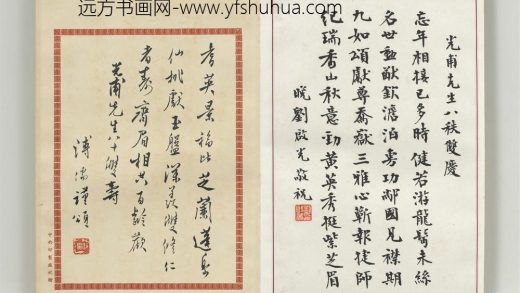 远方书画网-www.yfshuhua.com
光甫先生八秩雙慶
忘年相接已多時健若游龍鬢未絲
名世盛猷欽澹泊壽功鄰國見襟期
九如頌獻尊喬嶽三雅心斟報捷師
紀瑞香山秋意勁黃英秀挺紫芝眉
晚劉啟光敬祝
耆英景福比芝蘭蓬島
仙桃獻玉盤深羨雙修仁
者壽齊眉相共百齡歡
光甫先生八十雙壽
謹頌